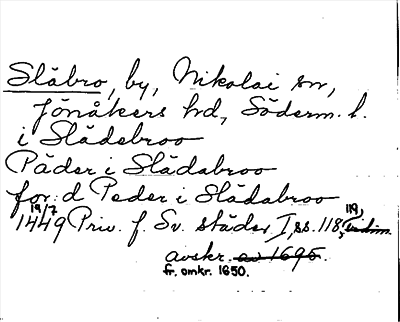 Släbro, by, Nikolai sn,
Jönåkers hd, Söderm. l.
i Slädebroo
Päder i Slädabroo
for:d Peder i Slädabroo
19/7 119,
1449 Priv. f. Sv. städer I, ss. 118, vidim.
avskr. av 1695.
fr. omkr. 1650.